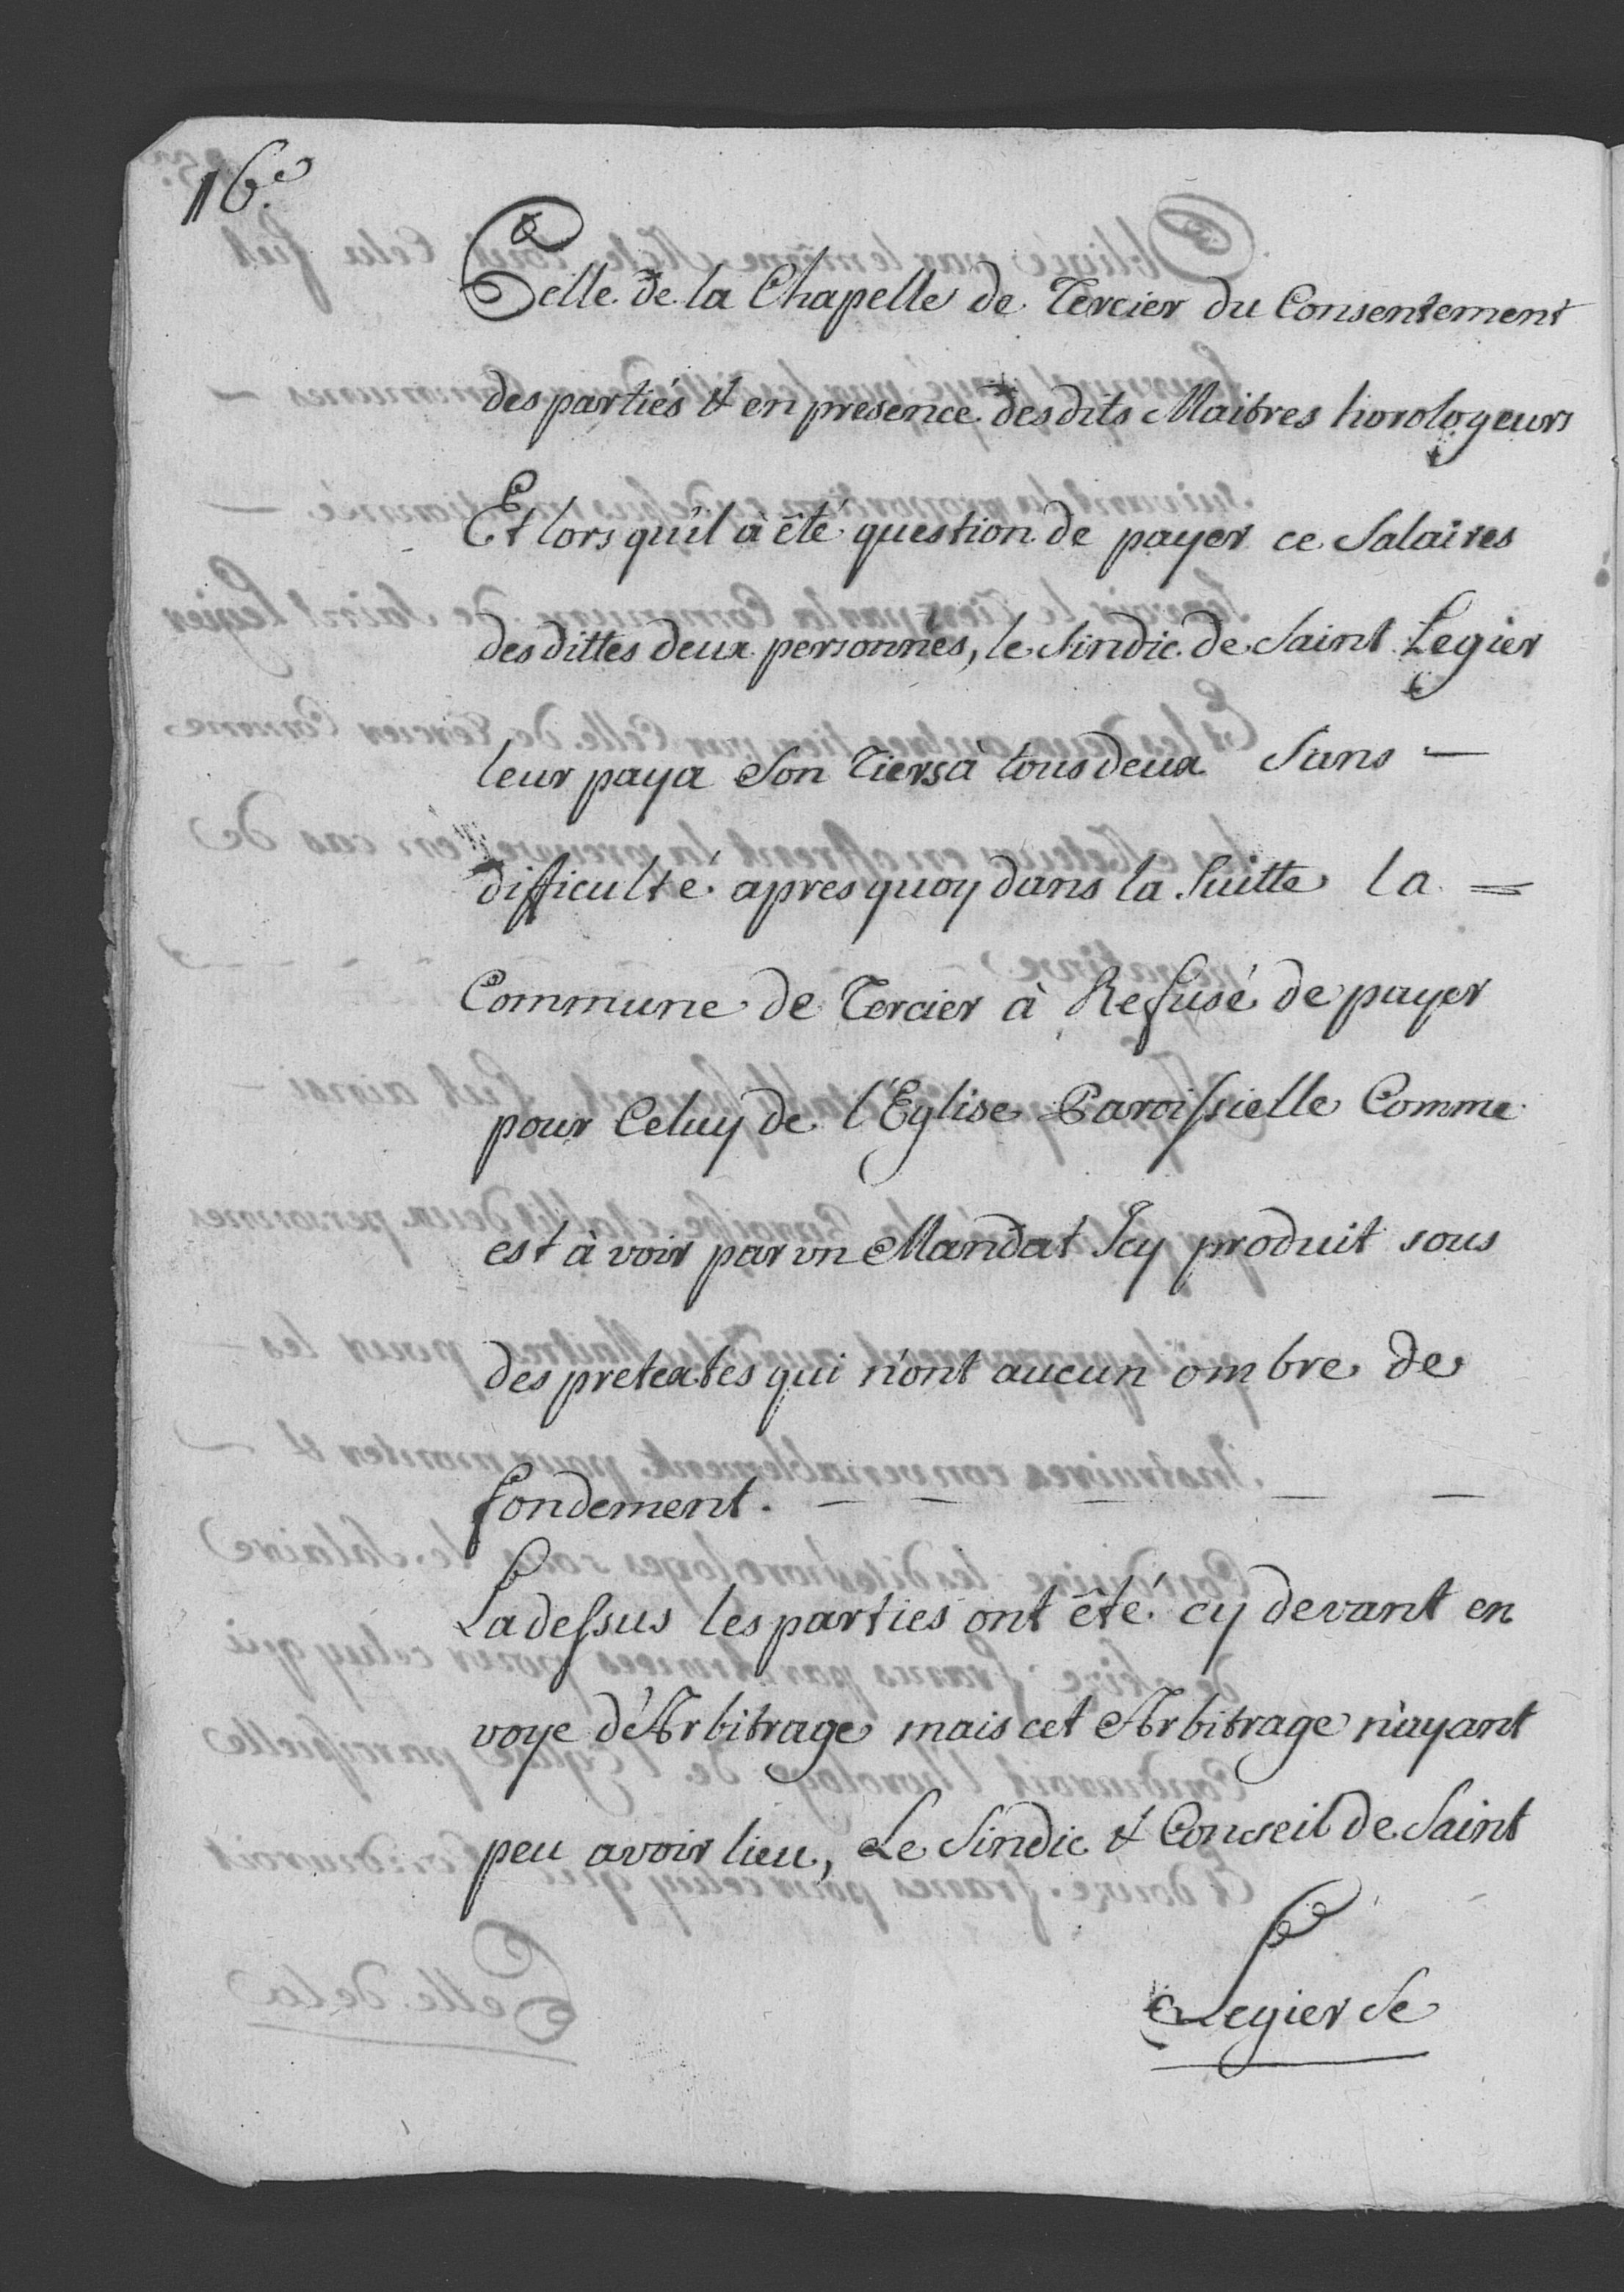 16.e
Celle de la Chapelle de Tercier du Consentement
des partiés & en presence desdits Maitres horologeurs
Et lors qu'il à êté question de payer ce Salaires
des dittes deux personnes, le Sindic de Saint Legier
leur paya Son Tiers à tous deux Sans —
difficulté apres quoy dans la Suitte la =
Commune de Tercier à Refusé de payer
pour Celuy de l'Eglise Paroissielle Comme
est à voir par vn Mandat Icy produit sous
des pretextes qui n'ont aucun ombre de
fondement. — — — — —
La dessus les parties ont êté cy devant en
voye d'Arbitrage mais cet Arbitrage n'ayant
peu avoir lieu, Le Sindic & Conseil de Saint
Legier Se